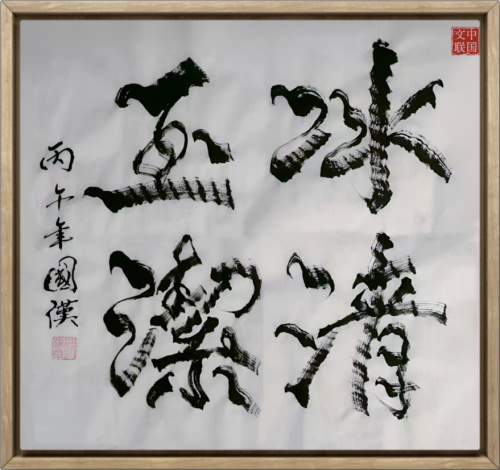 中国
文联
冰清
玉潔
丙午年國漢